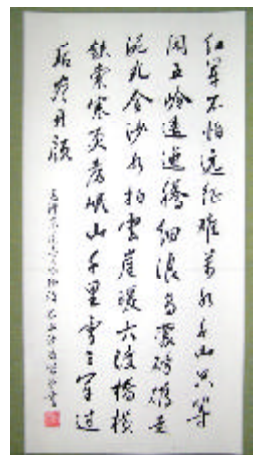 红军不怕远征难萬水千山只等
闲五岭逶迤腾细浪乌蒙磅礴走
泥丸金沙水拍雲崖暖大渡橋横
铁索寒更喜岷山千里雪三军过
后尽开颜
毛泽东